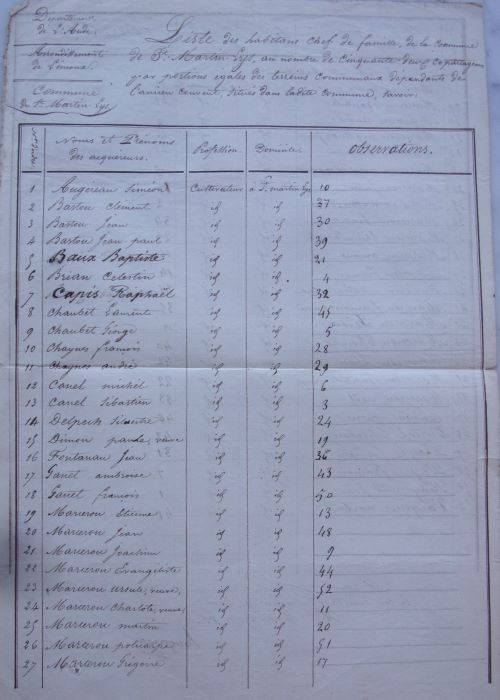 Département
de l'Aude.
Arrondissement
de Limoux.
Commune
de St Martin Lys
Liste des habitans chef de famille, de la Commune
de St Martin Lys, au nombre de Cinquante deux Copartageans
par portions egales des terreins Communaux dépendants de
l'ancien couvent, situés dans ladite commune, savoir:
Noms et Prénoms des acquereurs. Profession. Domicile. Observations.
1 Augereau Siméon Cultivateur à St martin lys 10
2 Bastou Clement id id 37
3 Bastou Jean id id 30
4 Bastou Jean paul id id 39
5 Baux Baptiste id id 21
6 Brian Celestin id id 4
7 Capis Raphaël id id 32
8 Chaubet Laurent id id 45
9 Chaubet George id id 5
10 Chaynes francois id id 28
11 Chaynes andré id id 29
12 Canel michel id id 6
13 Canel Sébastien id id 3
14 Delpech Silvestre id id 24
15 Dimon paule, veuve id id 19
16 Fontanau Jean id id 36
17 Ganet ambroise id id 43
18 Ganet francois id id 50
19 Marcerou Etienne id id 13
20 Marcerou Jean id id 48
21 Marcerou Joachim id id 9
22 Marcerou Evangeliste id id 44
23 Marcerou ursule, veuve, id id 52
24 Marcerou Charlote, veuve, id id 11
25 Marcerou martin id id 20
26 Marcerou policarpe id id 51
27 Marcerou Grégoire id id 17